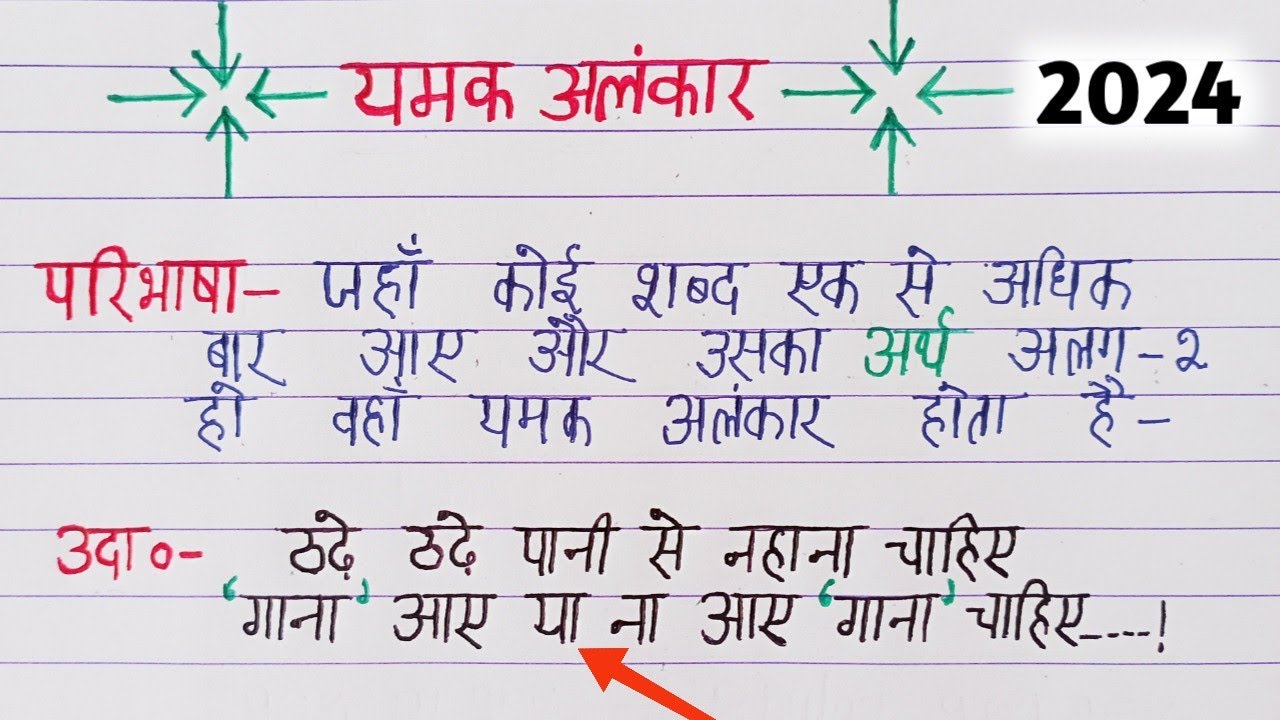 यमक अलंकार
2024
परिभाषा- जहाँ कोई शब्द एक से अधिक
बार आए और उसका अर्थ अलग-२
हो वहाँ यमक अलंकार होता है-
उदा०- ठढ़े ठढ़े पानी से नहाना चाहिए
'गाना' आए या ना आए 'गाना' चाहिए----!